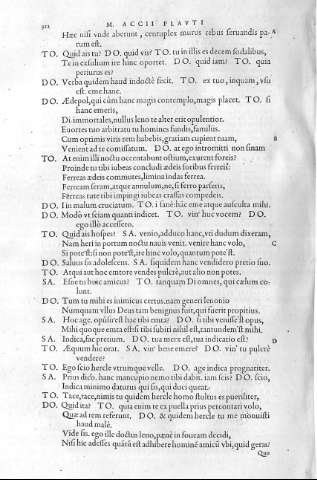 312 M. ACCII PLAVTI
Hæc nisi vnde aberunt, centuplex murus rebus seruandis pa- A
rum est.
TO. Quid ais tu? DO. quid vis? TO. tu in illis es decem sodalibus,
Te in exsilium ire hinc oportet. DO. quid iam? TO. quia
periurus es?
DO. Verba quidem haud indocte fecit. TO. ex tuo, inquam, vsu
est. eme hanc.
DO. Ædepol, qui cùm hanc magis contemplo, magis placet. TO. si
hanc emeris,
Di immortales, nullus leno te alter erit opulentior.
Euortes tuo arbitratu homines fundis, familiis.
Cum optimis viris rem habebis, gratiam cupient tuam, B
Venient ad te comissatum. DO. at ego intromitti non sinam
TO. At enim illi noctu occentabunt ostium, exurent foreis?
Proinde tu tibi iubeas concludi ædeis foribus ferreis?
Ferreas ædeis commutes, limina indas ferrea.
Ferream seram, atque annulum, ne, si ferro parseris,
Ferreas tute tibi impingi iubeas crassas compedes.
DO. I in malum cruciatum. TO. i sanè hāc eme atque ausculta mihi.
DO. Modò vt sciam quanti indicet. TO. vin' huc vocem? DO.
ego illò accessero.
TO. Quid ais hospes? SA. venio, adduco hanc, vti dudum dixeram,
Nam heri in portum noctu nauis venit. venire hanc volo, C
Si potest: si non potest, ire hinc volo, quantum potest.
DO. Saluus sis adolescens. SA. siquidem hanc vendidero pretio suo.
TO. Atqui aut hoc emtore vendes pulcrè, aut alio non potes.
SA. Esne tu huic amicus? TO. tanquam Di omnes, qui cælum co-
lunt.
DO. Tum tu mihi es inimicus certus, nam generi lenonio
Numquam vllus Deus tam benignus fuit, qui fuerit propitius.
SA. Hoc age. opúsne est hac tibi emta? DO. si tibi venisse est opus,
Mihi quoque emta est: si tibi subiti nihil est, tantundem'st mihi.
SA. Indica, fac pretium. DO. tua merx est, tua indicatio est? D
TO. Æquum hic orat. SA. vin' bene emere? DO. vin' tu pulcrè
vendere?
TO. Ego scio hercle vtrumque velle. DO. age indica prognariter.
SA. Prius dico. hanc mancupio nemo tibi dabit. iam scis? DO. scio,
Indica minimo daturus qui sis, qui duci queat.
TO. Tace, tace, nimis tu quidem hercle homo stultus es pueriliter,
DO. Quid ita? TO. quia enim te ex puella prius percontari volo,
Quæ ad rem referunt, DO. & quidem hercle tu me monuisti
haud malè.
Vide sis. ego ille doctus leno, pænè in foueam decidi,
Nisi hic adesses quātū est adhibere hominē amicū vbi, quid geras?
Quo